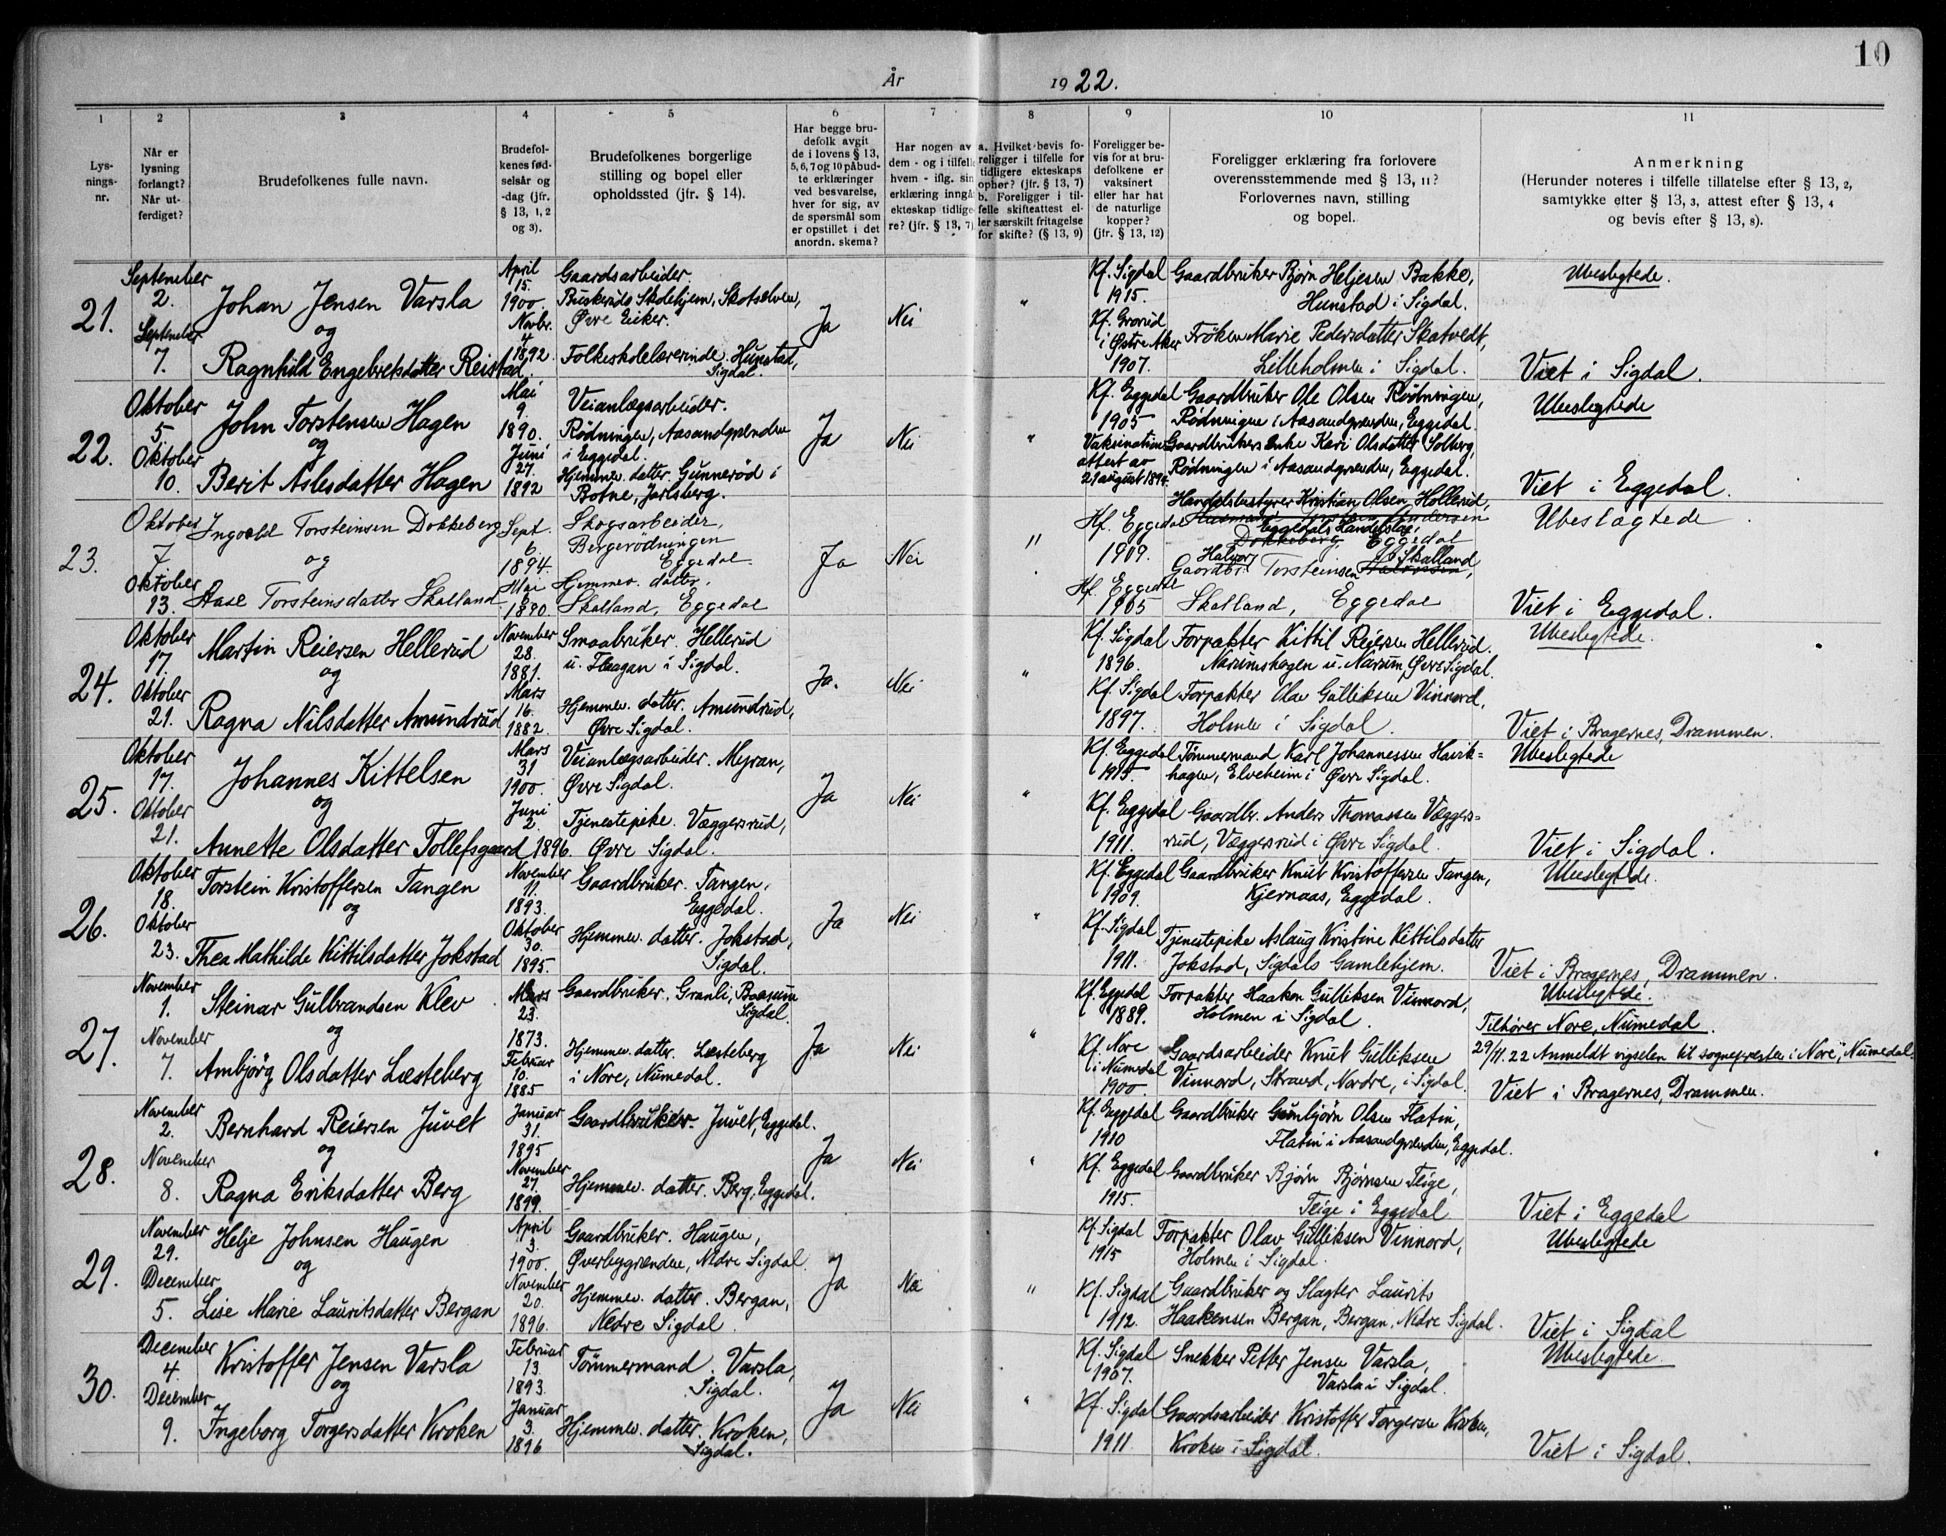 10
År 1922.
1 2 3 4 5 6 7 8 9 10 11
Lys-
nings-
nr.
Når er
lysning
forlangt?
Når ut-
ferdiget?
Brudefolkenes fulle navn.
Brudefol-
kenes fød-
selsår og
-dag (jfr.
§ 13, 1, 2
og 3).
Brudefolkenes borgerlige
stilling og bopel eller
opholdssted (jfr. § 14).
Har begge bru-
defolk avgit
de i lovens § 13,
5, 6, 7 og 10 påbud-
te erklæringer
ved besvarelse,
hver for sig, av
de spørsmål som
er opstillet i det
anordn. skema?
Har nogen av
dem - og i tilfelle
hvem - iflg. sin
erklæring inngå
ekteskap tidlige-
re? (jfr. § 13, 7)
a. Hvilket bevis fo-
religger i tilfelle for
tidligere ekteskaps
ophør? (jfr. § 13, 7)
b. Foreligger i til-
felle skifteattest el-
ler særskilt fritagelse
for skifte? (§ 13, 9)
Foreligger be-
vis for at bru-
defolkene er
vaksinert
eller har hat
de naturlige
kopper?
(jfr. § 13, 12)
Foreligger erklæring fra forlovere
overensstemmende med § 13, 11?
Forlovernes navn, stilling
og bopel.
Anmerkning
(Herunder noteres i tilfelle tillatelse efter § 13, 2,
samtykke efter § 13, 3, attest efter § 13, 4
og bevis efter § 13, 8).
21.
September
2.
September
7.
Johan Jensen Varsla
og
Ragnhild Engebretsdatter Reistad.
April
15.
1900.
Novbr.
4
1892.
Gaardsarbeider.
Buskeruds Skolehjem, Skotselven,
Øvre Eiker.
Folkeskolelærerinde. Hunstad,
Sigdal.
Ja
Nei
"
Kf. Sigdal
1915.
Kf. Grorud
i Østre Aker
1907.
Gaardbruker Bjørn Heljesen Bakke,
Hunstad i Sigdal.
Frøken Marie Pedersdatter Skatvedt,
Lilleholmen i Sigdal.
Ubeslegtede.
Viet i Sigdal.
22.
Oktober
5.
Oktober
10.
John Torstensen Hagen
og
Berit Aslesdatter Hagen
Mai
9.
1890.
Juni
27.
1892
Veianlægsarbeider.
Rødningen, Aasandgrænden
i Eggedal.
Hjemmev. datter. Gunnerød i
Botne, Jarlsberg.
Ja
Nei
"
Kf. Eggedal
1905
Vaksinations
attest av
21 august 1894.
Gaardbruker Ole Olsen Rødningen,
Rødningen i Aasandgrænden, Eggedal.
Gaardbrukers enke Kari Olsdatter Solberg,
Rødningen i Aasandgrænden, Eggedal.
Ubeslegtede
Viet i Eggedal.
23.
Oktober
7.
Oktober
13.
Ingvald Torsteinsen Dokkeberg
og
Aase Torsteinsdatter Skalland
Sept.
6.
1894.
Mai
6
1890
Skogsarbeider,
Bergerødningen
Eggedal
Hjemmev. datter.
Skalland, Eggedal
Ja
Nei
"
Kf. Eggedal
1909.
Kf. Eggedal
1905
Handelsbestyrer Kristian Olsen Hollerud,
Eggedals Handelslag,
Dokkeberg, Eggedal
Gaardbr. Halvor Torsteinsen Skalland,
Skalland, Eggedal
Ubeslægtede
Viet i Eggedal.
24.
Oktober
17.
Oktober
21.
Martin Reiersen Hellerud
og
Ragna Nilsdatter Amundrud
November
28.
1881.
Mars
16.
1882
Smaabruker. Hellerud
u. Flaagan i Sigdal.
Hjemmev. datter. Amundrud,
Øvre Sigdal.
Ja.
Nei
"
Kf. Sigdal
1896.
Kf. Sigdal
1897.
Forpakter Kittil Reiersen Hellerud.
Narumshagen u. Narum, Øvre Sigdal.
Forpakter Olav Gulliksen Vinnord,
Holmen i Sigdal.
Ubeslegtede.
Viet i Bragernes, Drammen.
25.
Oktober
17.
Oktober
21.
Johannes Kittelsen
og
Annette Olsdatter Tollefsgaard
Mars
31
1900.
Juni
2.
1896.
Veianlægsarbeider. Myran,
Øvre Sigdal.
Tjenestepike. Væggersrud,
Øvre Sigdal.
Ja
Nei
"
Kf. Eggedal
1915.
Kf. Eggedal
1911.
Tømmermand Karl Johannessen Havik-
hagen, Elveheim i Øvre Sigdal.
Gaardbr. Anders Thomassen Væggers=
rud, Væggersrud i Øvre Sigdal.
Ubeslegtede
Viet i Sigdal.
26.
Oktober
18.
Oktober
23.
Torstein Kristoffersen Tangen
og
Thea Mathilde Kittilsdatter Jokstad
November
11.
1893.
Oktober
30.
1895.
Gaardbruker. Tangen,
Eggedal.
Hjemmev. datter. Jokstad,
Sigdal.
Ja
Nei
"
Kf. Eggedal
1909.
Kf. Sigdal
1911.
Gaardbruker Knut Kristoffersen Tangen,
Kjernaas, Eggedal.
Tjenestepike Aslaug Kristine Kittilsdatter
Jokstad, Sigdals Gamlehjem.
Ubeslegtede.
Viet i Bragernes, Drammen.
27.
November
1.
November
7.
Steinar Gulbrandsen Klev
og
Ambjørg Olsdatter Læsteberg
Mars
23.
1873.
Februar
10.
1885
Gaardbruker. Granli, Baasum
Sigdal.
Hjemmev. datter. Læsteberg
i Nore, Numedal.
Ja
Nei
"
Kf. Eggedal
1889.
Kf. Nore
i Numedal
1900.
Forpakter Haakon Gulliksen Vinnord,
Holmen i Sigdal.
Gaardsarbeider Knut Gulliksen
Vinnord, Strand, Nordre, i Sigdal.
Ubeslegtede.
Tilhører Nore, Numedal.
29/11.22 Anmeldt vigselen til sognepresten i Nore, Numedal.
Viet i Bragernes, Drammen.
28.
November
2.
November
8.
Bernhard Reiersen Juvet
og
Ragna Eriksdatter Berg
Januar
31.
1895
November
27.
1899.
Gaardbruker. Juvet, Eggedal.
Hjemmev. datter. Berg, Eggedal.
Ja
Nei
"
Kf. Eggedal
1910
Kf. Eggedal
1915.
Gaardbruker Gunbjørn Olsen Flatin,
Flatin i Aasandgrænden, Eggedal.
Gaardbruker Bjørn Bjørnsen Teige,
Teige i Eggedal
Viet i Eggedal
29.
November
29.
December
5.
Helje Johnsen Haugen
og
Lise Marie Lauritsdatter Bergan
April
3.
1900.
November
20.
1896.
Gaardbruker. Haugen,
Øverbygrænden, Nedre Sigdal.
Hjemmev. datter. Bergan,
Nedre Sigdal.
Ja
Nei
"
Kf. Sigdal
1915
Kf. Sigdal
1912.
Forpakter Olav Gulliksen Vinnord,
Holmen i Sigdal.
Gaardbruker og Slagter Laurits
Haakensen Bergan, Bergan, Nedre Sigdal.
Ubeslegtede
Viet i Sigdal
30.
December
4.
December
9.
Kristoffer Jensen Varsla
og
Ingeborg Torgersdatter Kroken
Februar
13.
1893.
Januar
3.
1896
Tømmermand. Varsla,
Sigdal.
Hjemmev. datter. Kroken,
Sigdal.
Ja
Nei
"
Kf. Sigdal
1907.
Kf. Sigdal
1911.
Snekker Petter Jensen Varsla,
Varsla i Sigdal.
Gaardsarbeider Kristoffer Torgersen Kroken,
Kroken i Sigdal.
Ubeslegtede.
Viet i Sigdal.